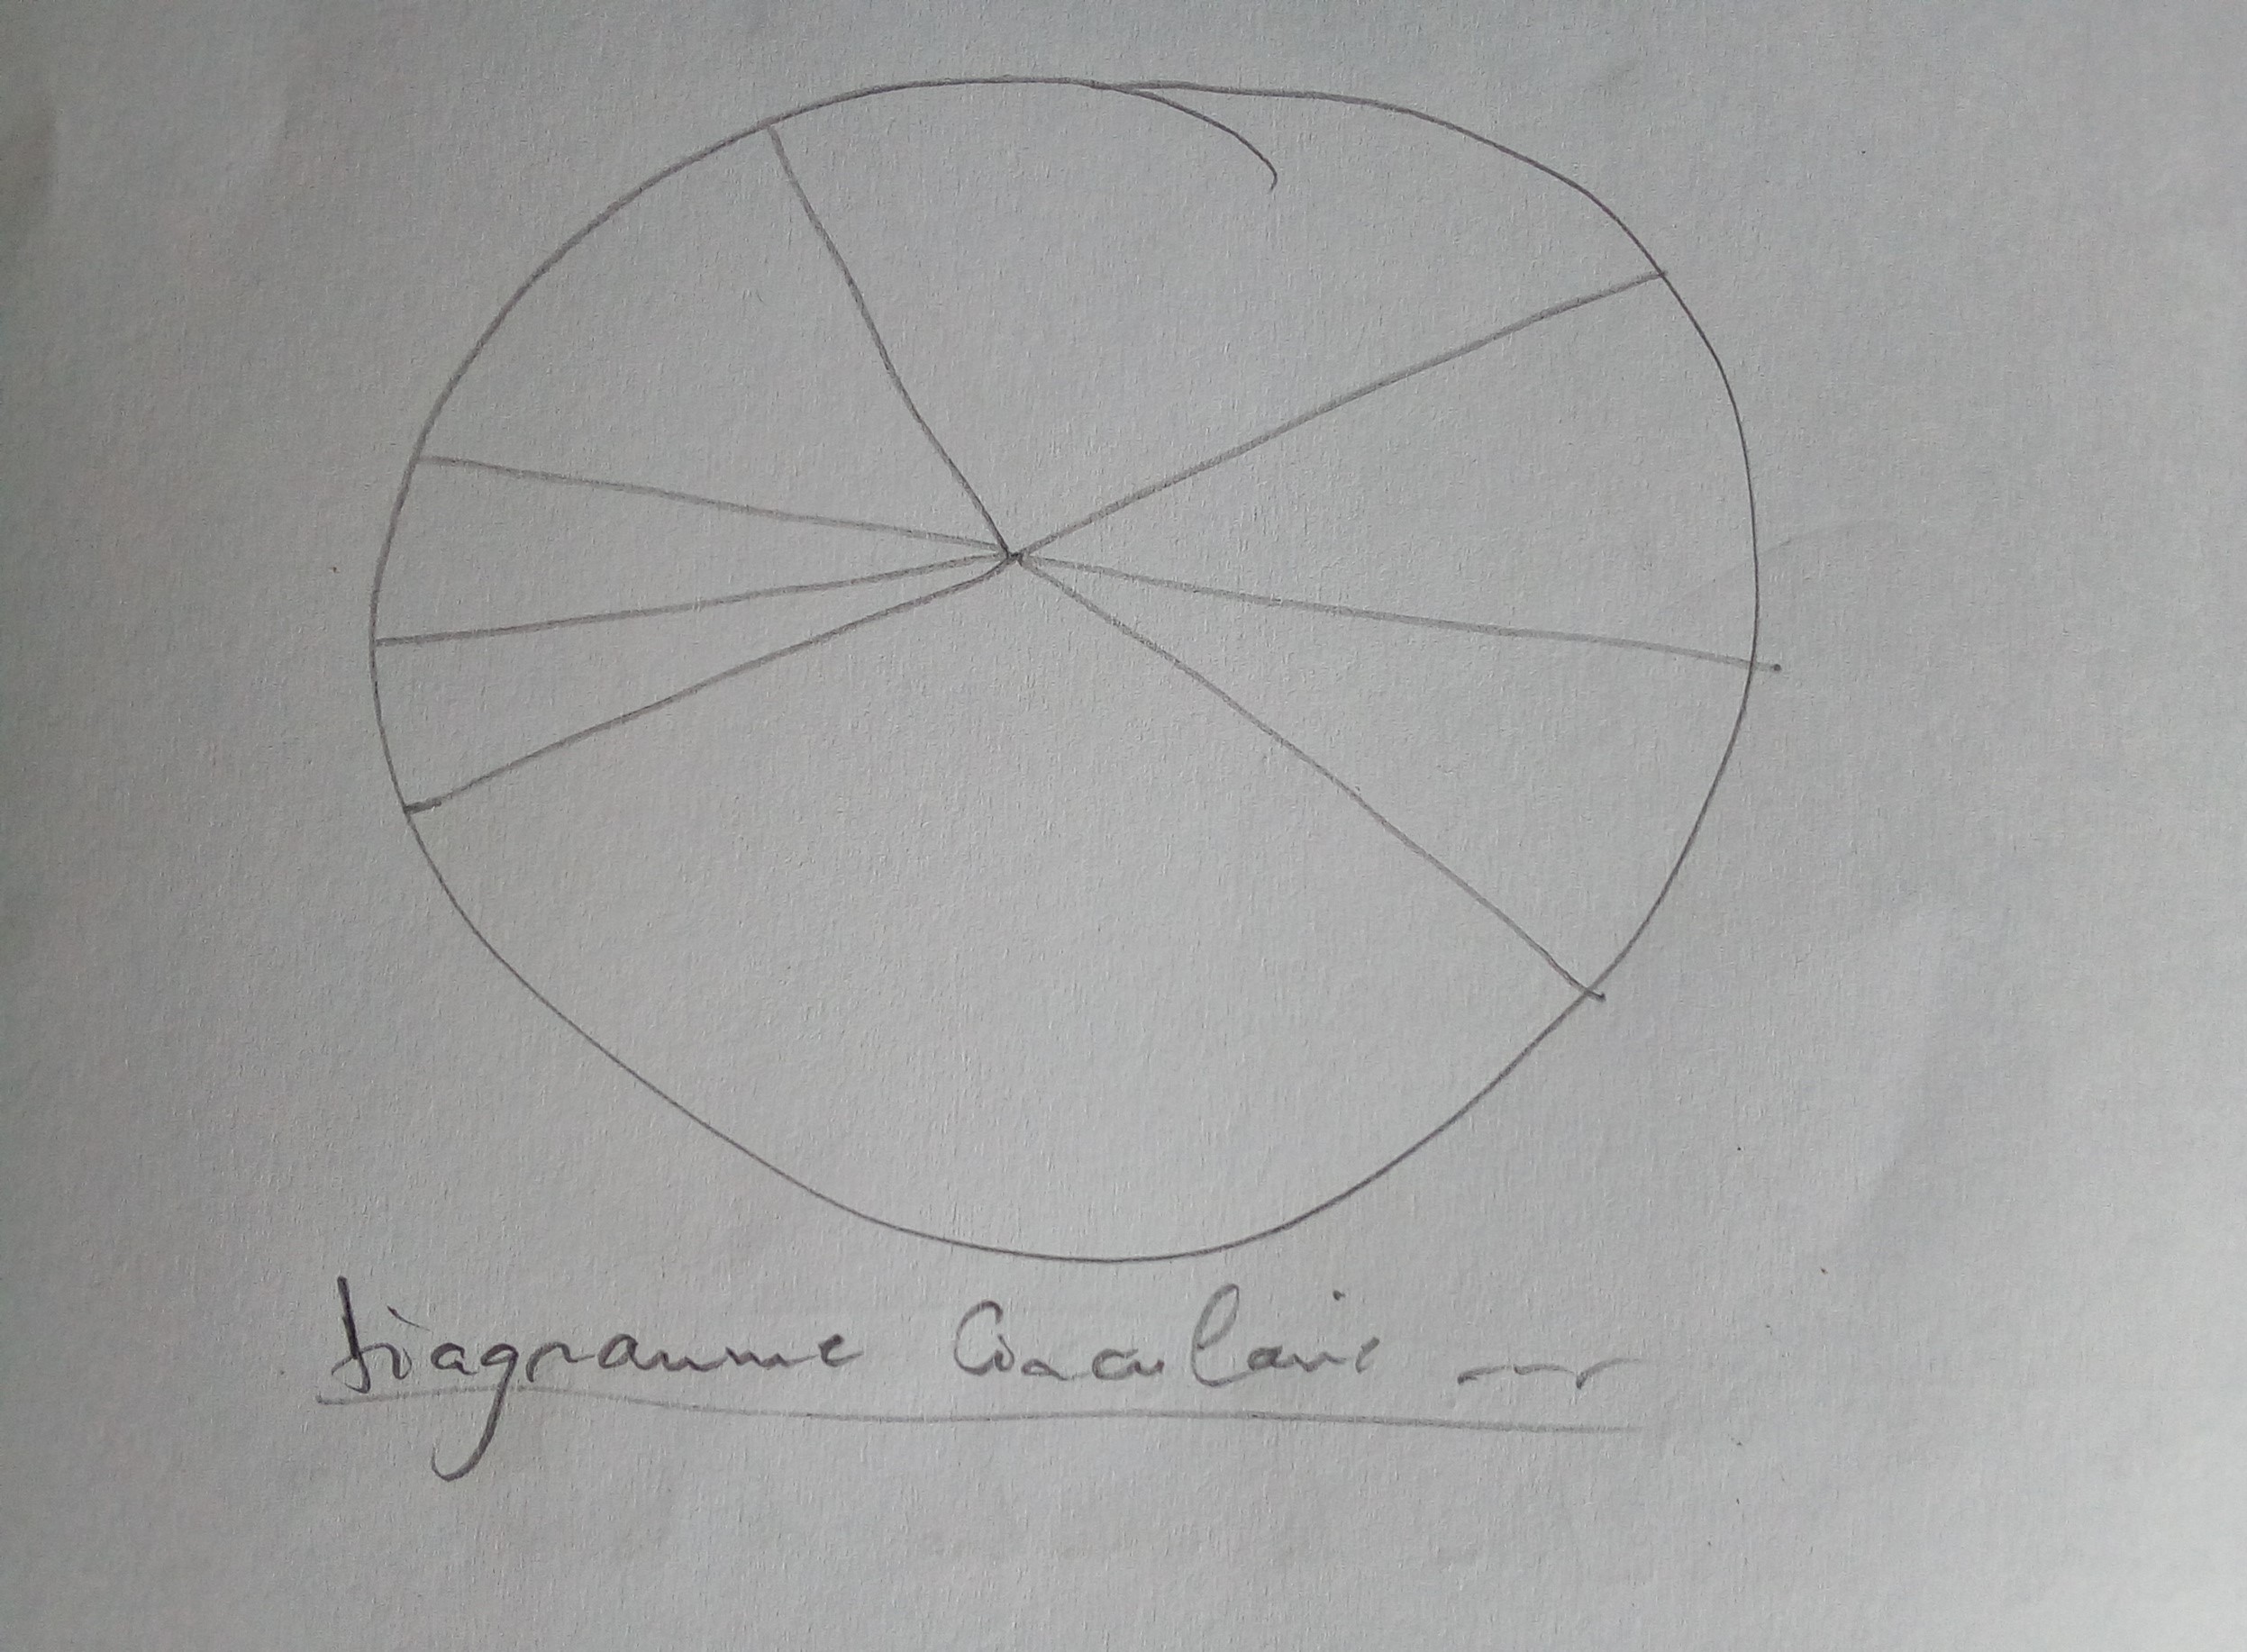 Diagramme Circulaire